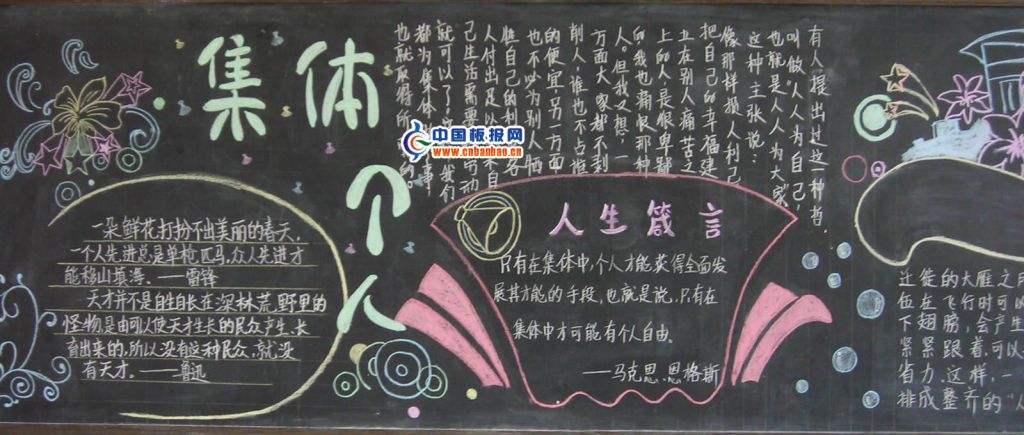 集体
个人
一朵鲜花打扮不出美丽的春天,
一个人先进总是单枪匹马,众人先进才
能移山填海。——雷锋
天才并不是自生自长在深林荒野里的
怪物,是由可以使天才生长的民众产生、长
育出来的,所以没有这种民众,就没
有天才。——鲁迅
中国板报网
www.cnbanbao.cn
有人提出过这一种者,
叫做“人人为自己,
也就是人人为大家”
这种主张说:
像那样损人利己
把自己的幸福建
立在别人痛苦之
上的人是很卑鄙
的我也痛恨那种
人。但我又想,一
方面大家都不剥
削人谁也不占谁
的便宜另一方面
也不必为别人牺
牲自己的利
人付出足以
己生活需要
就可以了
都为集体
也就
人生箴言
只有在集体中,个人才能获得全面发
展其才能的手段,也就是说,只有在
集体中才可能有个人自由。
——马克思 恩格斯
迁徙的大雁之
伍在飞行时可以
下翅膀,会产生
紧紧跟着,可以
省力,这样,一
排成整齐的“人